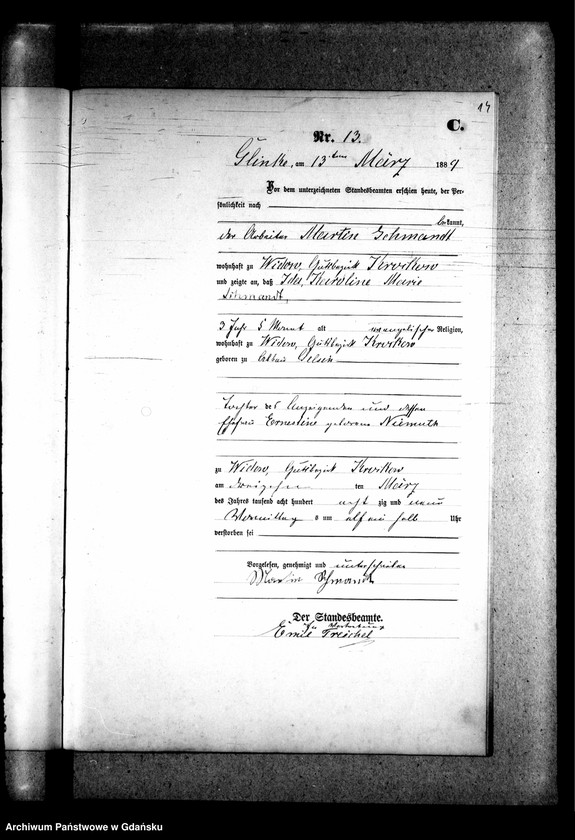 14
C.
Nr. 13.
Glinke, am 13ten März 1889
Vor dem unterzeichneten Standesbeamten erschien heute, der Per-
sönlichkeit nach
bekannt,
der Arbeiter Martin Schmandt
wohnhaft zu Widow, Gutsbezirk
und zeigte an, daß Ida, Karoline Marie
Schmandt,
3 Jahr 5 Monat alt evangelischer Religion,
wohnhaft zu Widow, Gutsbezirk
geboren zu
Tochter des Anzeigenden und dessen
Ehefrau Ernestine geborene Niemuth
zu Widow, Gutsbezirk
am dreizehn ten März
des Jahres tausend acht hundert acht zig und neun
Vormittag s um elf ein halb Uhr
verstorben sei
Vorgelesen, genehmigt und unterschrieben
Martin Schmandt
Der Standesbeamte.
In Vertretung
Emil Treichel
Archiwum Państwowe w Gdańsku